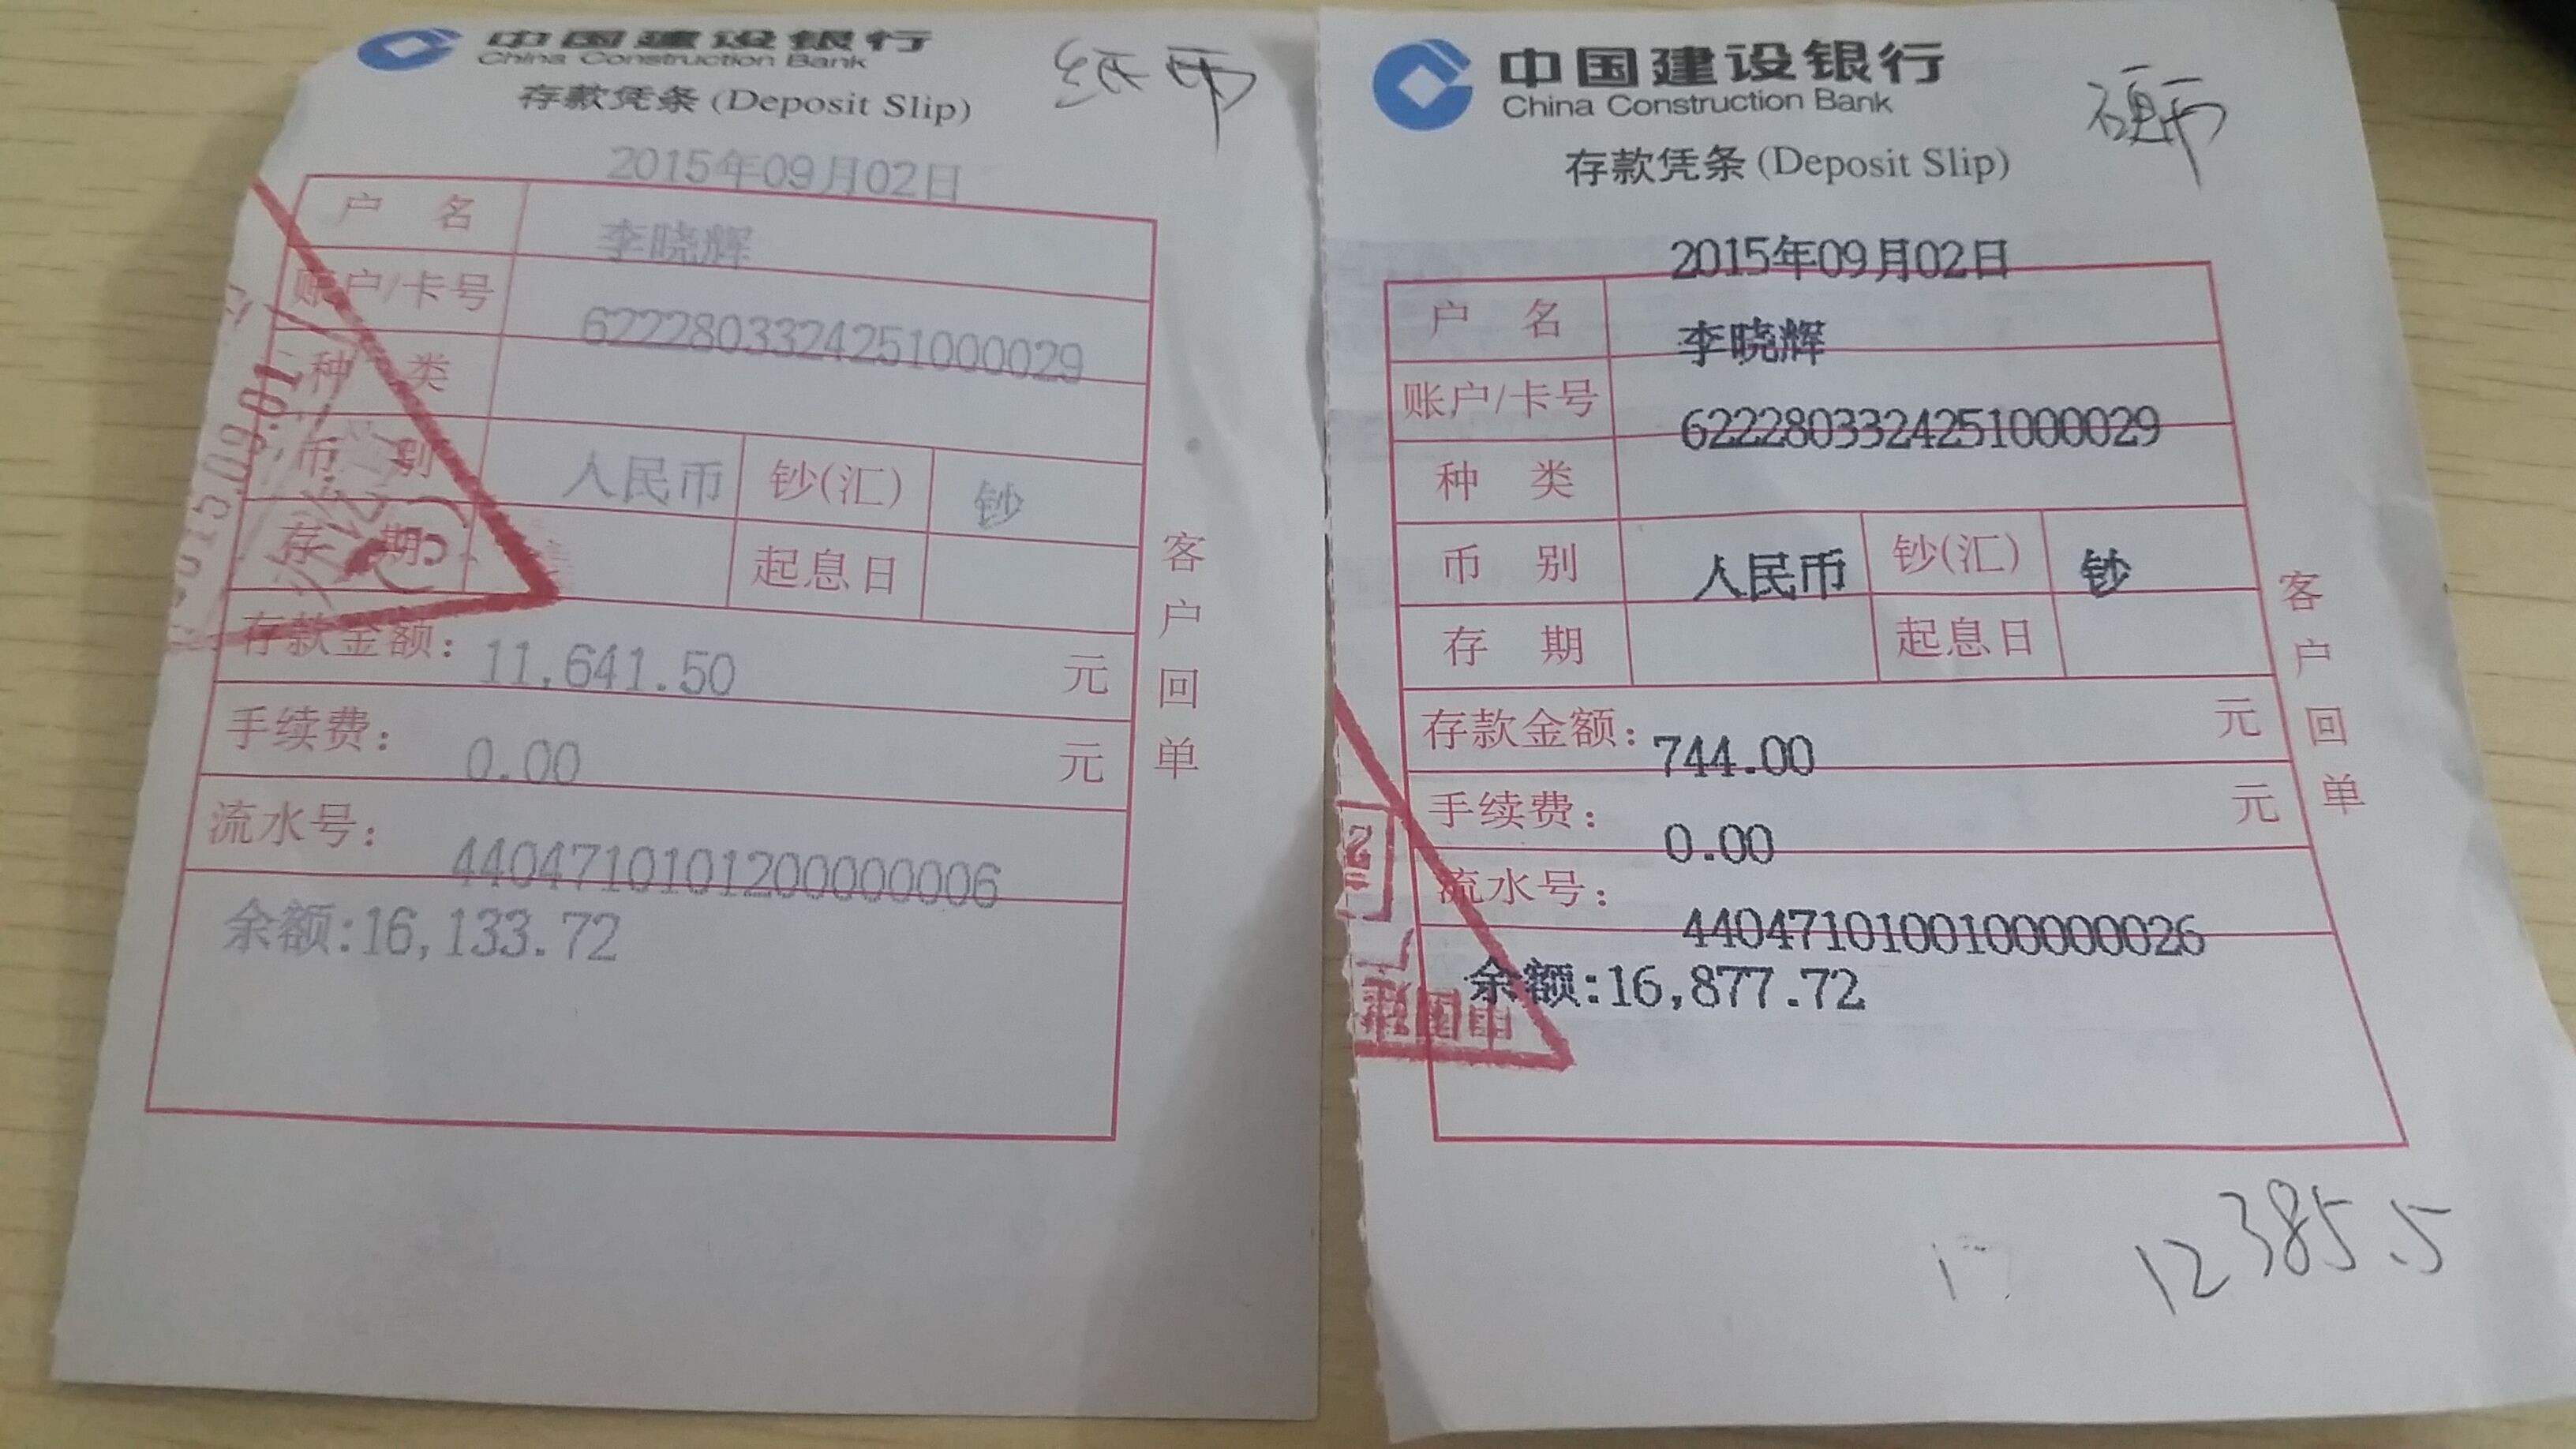 中国建设银行
China Construction Bank
存款凭条 (Deposit Slip)
纸币
2015年09月02日
户 名 李晓辉
账户/卡号 6222803324251000029
种 类
币 别 人民币 钞(汇) 钞
存 期 起息日
存款金额: 11,641.50 元
手续费: 0.00 元
流水号: 4404710101200000006
余额:16,133.72
客户回单
2015.09.01
中国建设银行
China Construction Bank
存款凭条 (Deposit Slip)
硬币
2015年09月02日
户 名 李晓辉
账户/卡号 6222803324251000029
种 类
币 别 人民币 钞(汇) 钞
存 期 起息日
存款金额: 744.00 元
手续费: 0.00 元
流水号: 4404710100100000026
余额:16,877.72
客户回单
12385.5